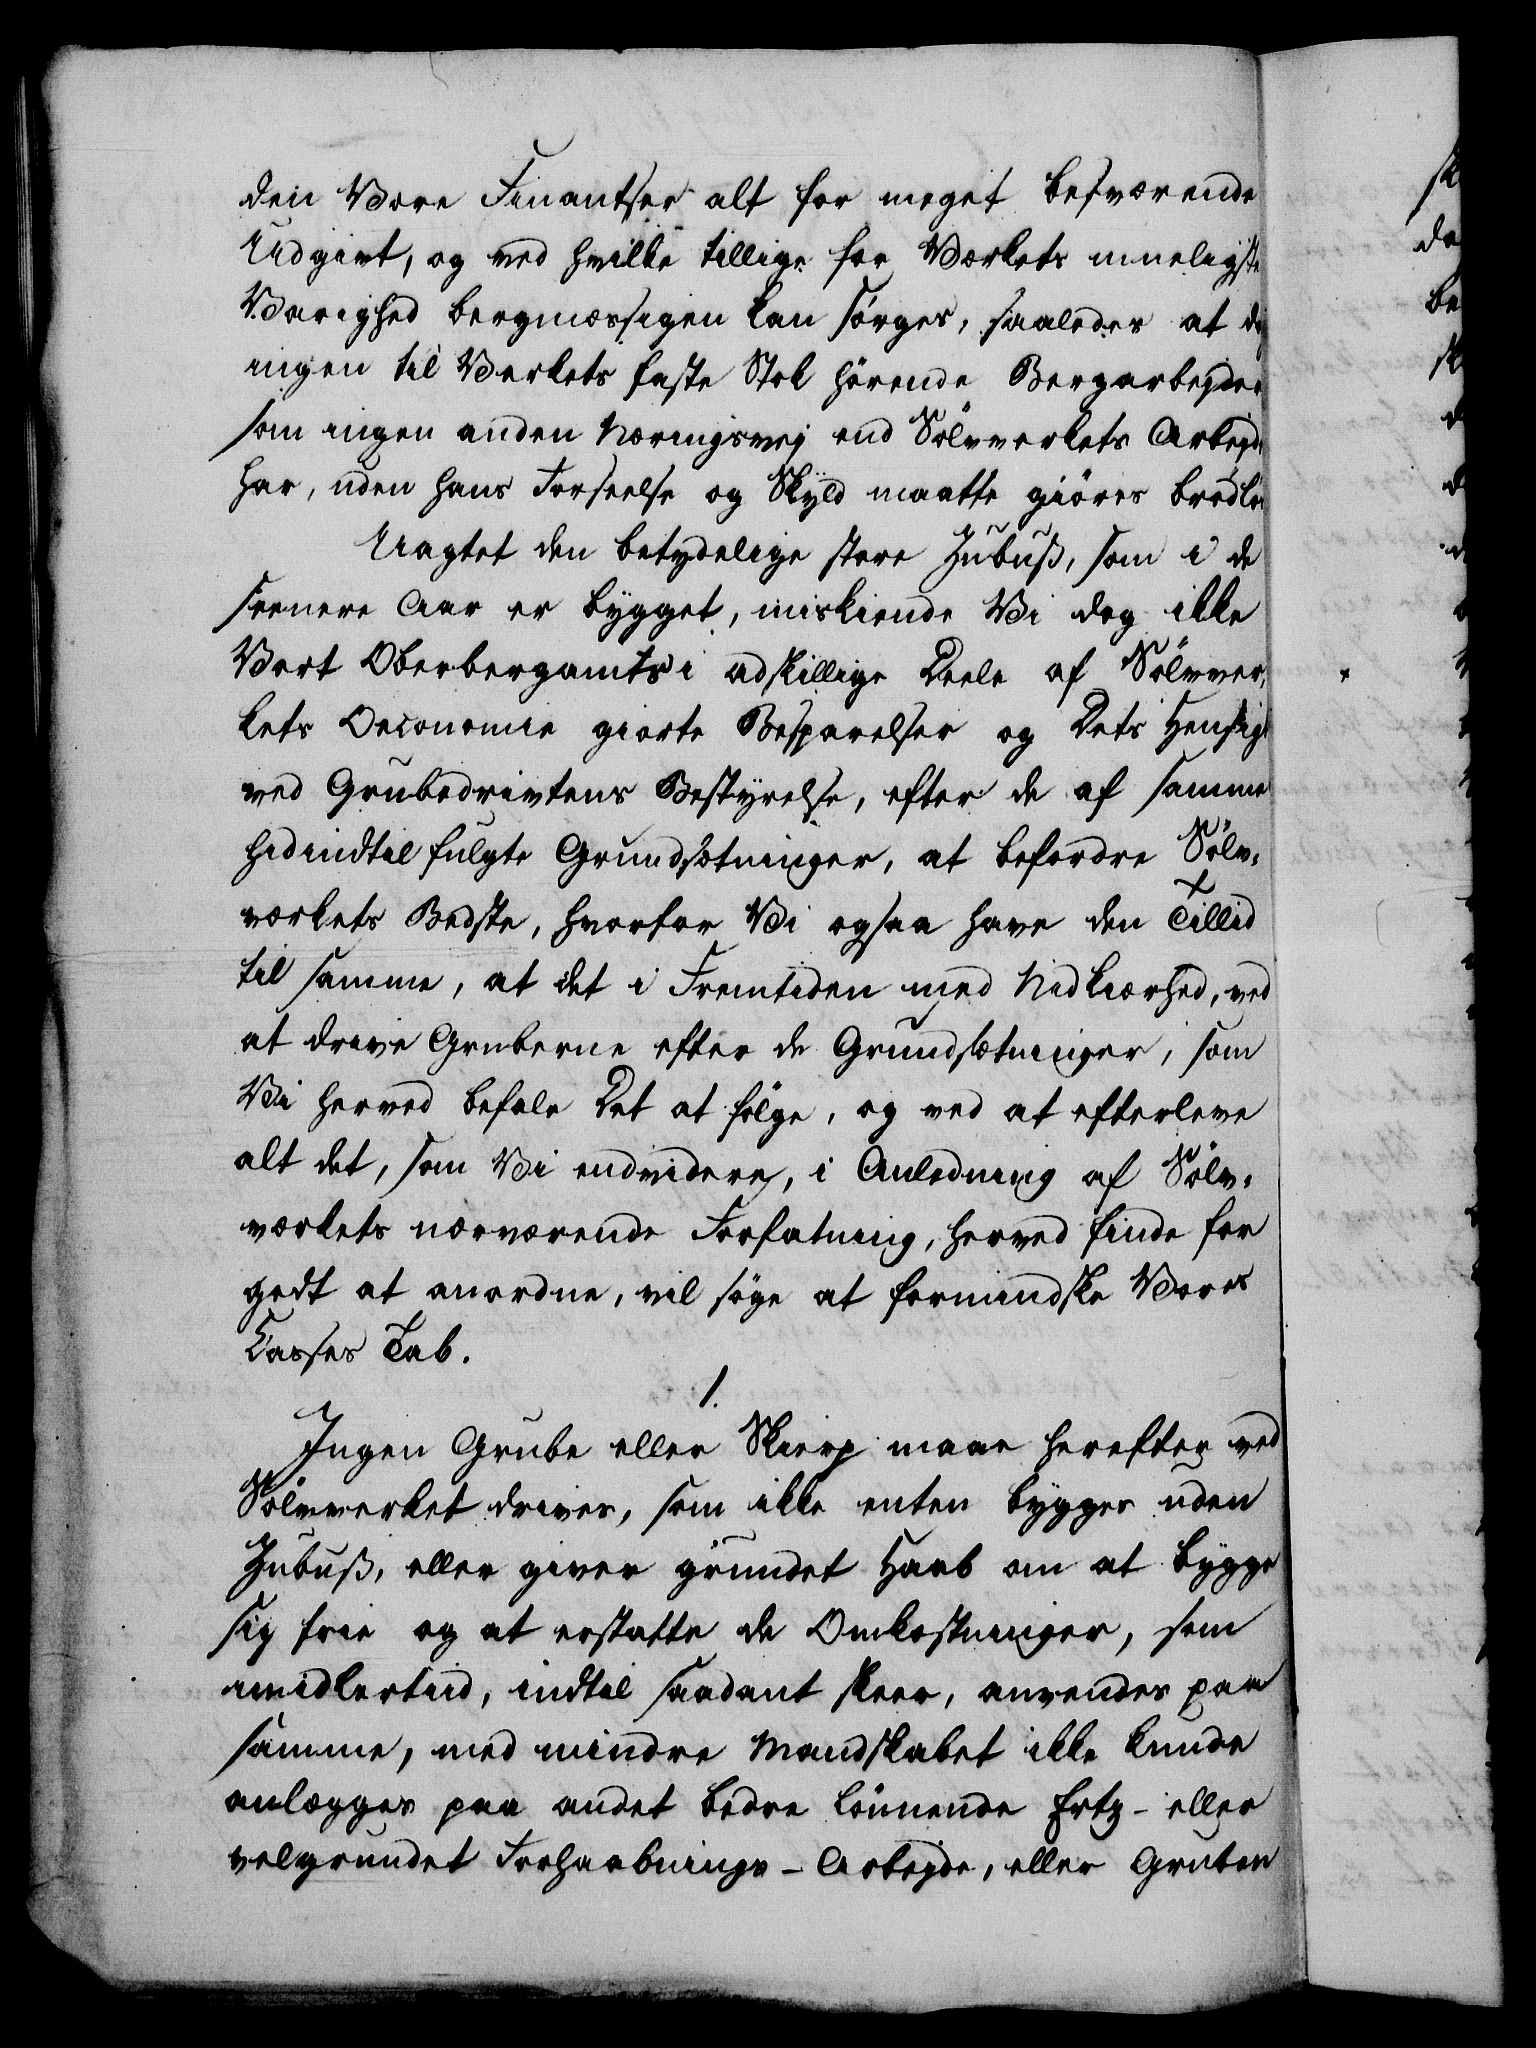 den Vore Finantser alt for meget besværende
Udgivt, og ved hvilke tillige for Værkets mueligste
Varighed bergmæssigen kan sørges, saaledes at
ingen til Verkets faste Stok hörende Bergarbejder
som ingen anden Næringsvej end Sölvverkets Arbejde
har, uden hans Forseelse og Skyld maatte giöres brödlös
Uagtet den betydelige store Zubuß, som i de
seenere Aar er bygget, miskiende Vi dog ikke
Vort Oberbergamts i adskillige Deele af Sölvver,
kets Oeconomie giorte Besparelser og Dets Hensigt
ved Grubedrivtens Bestyrelse, efter de af samme
hidindtil fulgte Grundsætninger, at befordre Sölv,
værkets Bedste, hvorfor Vi ogsaa have den Tillid
til samme, at det i Fremtiden med Nidkiærhed, ved
at drive Gruberne efter de Grundsætninger, som
Vi herved befale Det at fölge, og ved at efterleve
alt det, som Vi endvidere, i Anledning af Sölv,
værkets nærværende Forfatning, herved finde for
godt at anordne, vil söge at formindske Vores
Casses Tab.
1.
Ingen Grube eller Skierp maae herefter ved
Sölvverket drives, som ikke enten bygges uden
Zubuß, eller giver grundet Haab om at bygge
sig frie og at erstatte de Omkostninger, som
imidlertiid, indtil saadant skeer, anvendes paa
samme, med mindre Mandskabet ikke kunde
anlægges paa andet bedre lönnende Ertz- eller
velgrundet Forhaabnings- Arbejde, eller Gruben